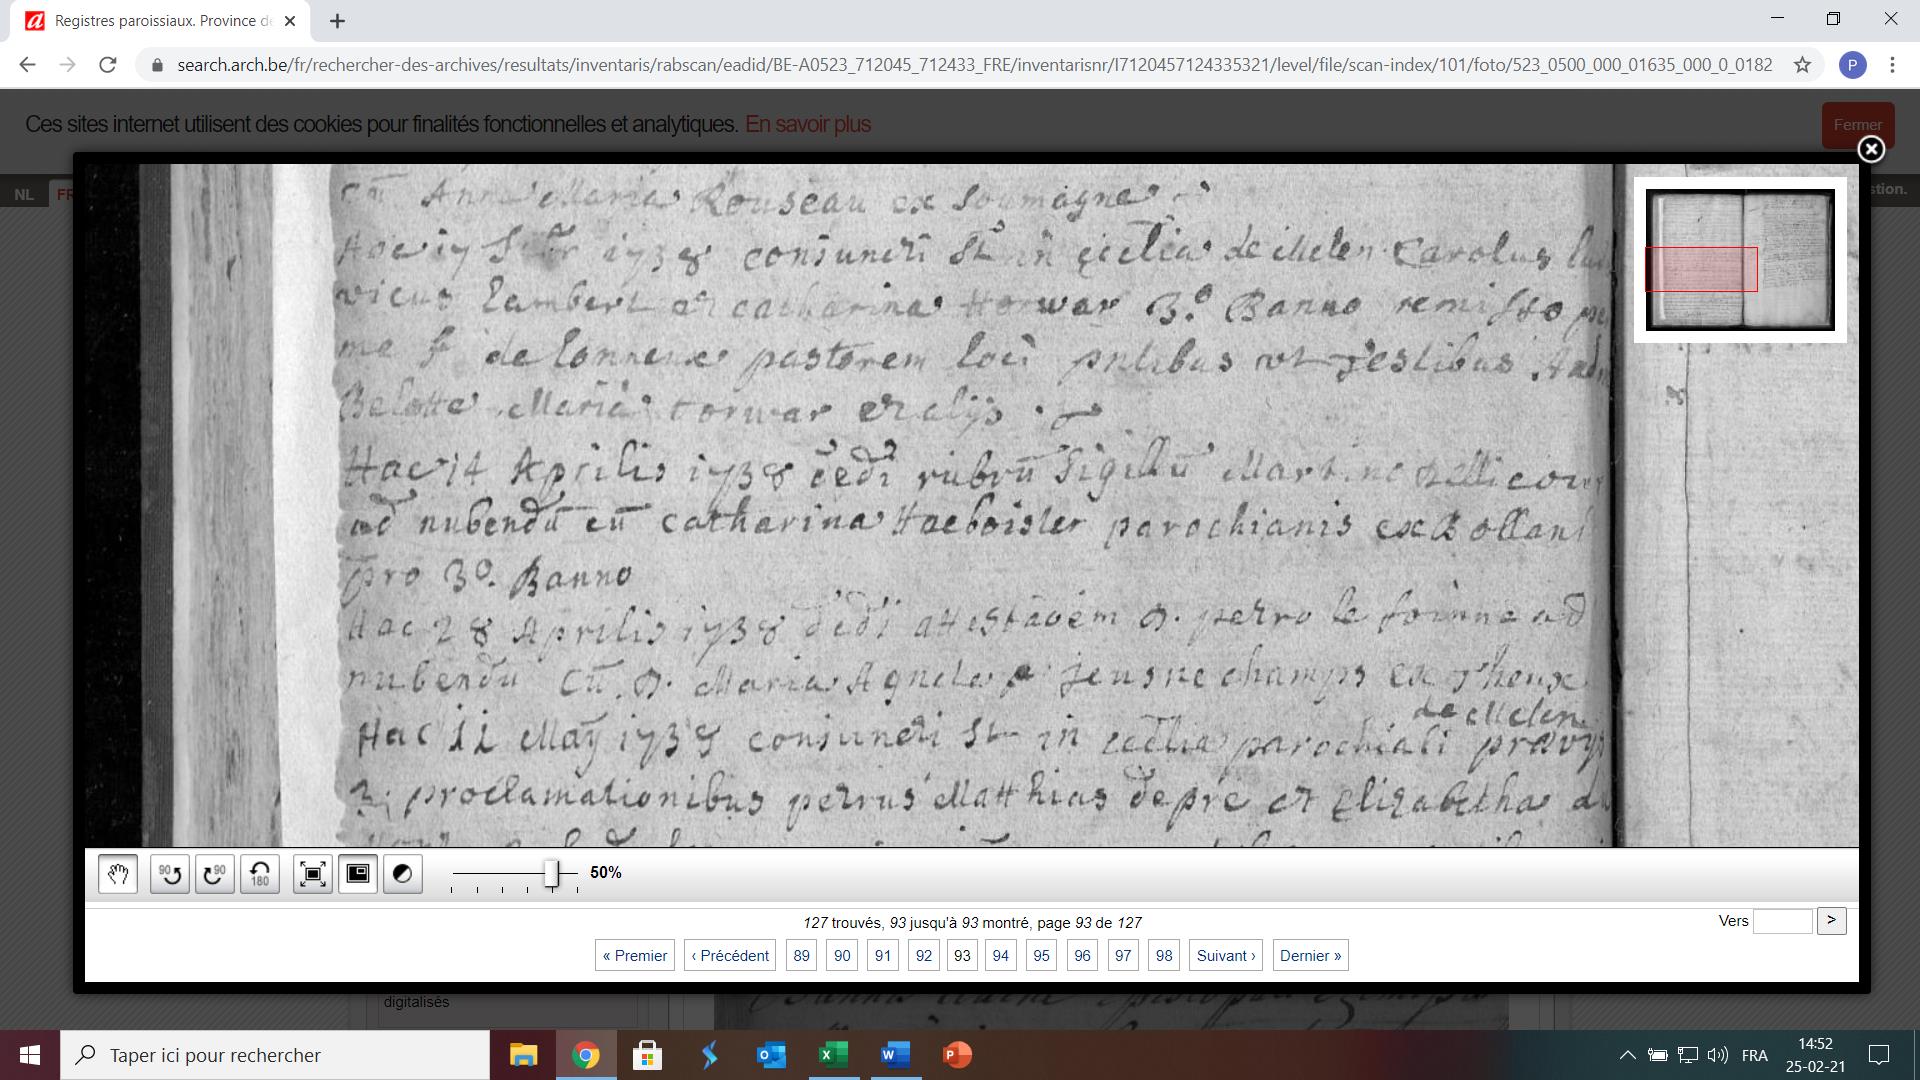 Registres paroissiaux. Province de
search.arch.be/fr/rechercher-des-archives/resultats/inventaris/rabscan/eadid/BE-A0523_712045_712433_FRE/inventarisnr/I7120457124335321/level/file/scan-index/101/foto/523_0500_000_01635_000_0_0182
P
Ces sites internet utilisent des cookies pour finalités fonctionnelles et analytiques. En savoir plus
Fermer
NL FR
stion.
cū Anna Maria Rouseau ex Soumagne
Hac 17 1738 coniuncti st in ecclia de Melen Carolus lu
vicus Lambert et catharina Horwar 3.º Banno remisso
me de Lonneux pastorem loci pntibus vt testibus
Belotte Maria torwar et alijs
Hac 14 Aprilis 1738 dedi rubrū Sigillū
ad nubendū cū catharina Haeboister parochianis ex Bollan
pro 3º. Banno
Hac 28 Aprilis 1738 dedi D. petro le ad
nubendū cū D. Maria Agnete jeusnechamps ex Theux
de Melen
Hac 11 Maÿ 1738 coniuncti st in ecclia parochiali
3 proclamationibus petrus Matthias depré et Elizabetha
90
90
180
50%
127 trouvés, 93 jusqu'à 93 montré, page 93 de 127
Vers >
« Premier ‹ Précédent 89 90 91 92 93 94 95 96 97 98 Suivant › Dernier »
digitalisés
Taper ici pour rechercher
FRA
14:52
25-02-21